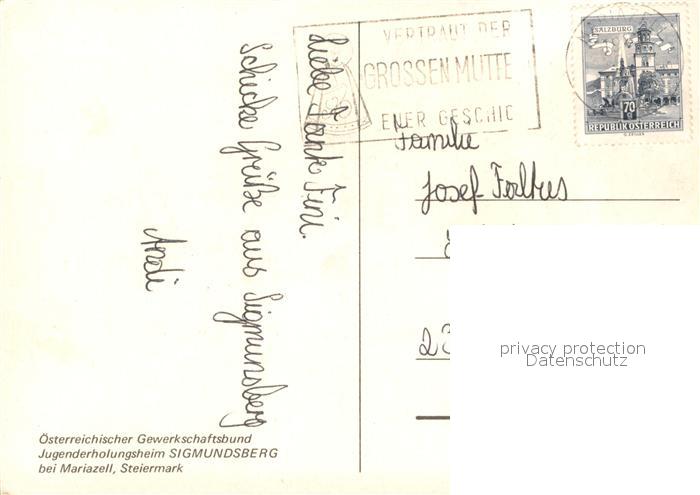 Liebe Tante Fini.
Schicke Grüße aus Sigmundsberg
Andi
VERTRAUT DER
GROSSEN MUTTE
ENER GESCHIC
SALZBURG
70
REPUBLIK ÖSTERREICH
Familie
Josef
22
privacy protection
Datenschutz
Österreichischer Gewerkschaftsbund
Jugenderholungsheim SIGMUNDSBERG
bei Mariazell, Steiermark